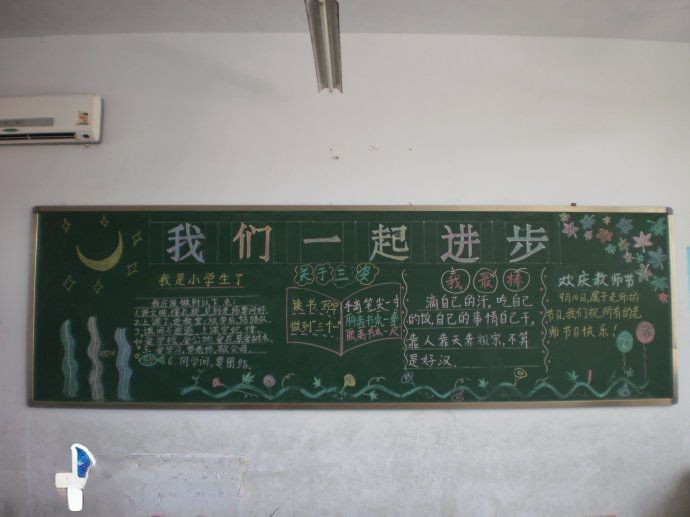 我们一起进步
我是小学生了
我应该做到以下几点:
1.讲文明,懂礼貌,见到老师要问好。
6.同学间,要团结。
关于三要
读书写字
做到三个一
手离笔尖一寸
胸离书本一拳
眼离书本一尺
我最棒
滴自己的汗,吃自己
的饭,自己的事情自己干,
靠人靠天靠祖宗,不算
是好汉。
欢庆教师节
9月10日,属于老师的
节日,我们祝所有的老
师节日快乐!